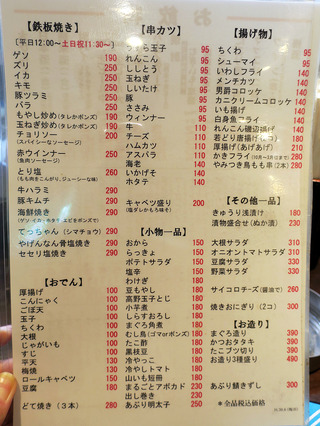 【鉄板焼き】
［平日12:00〜土日祝11:30〜］
ゲソ 190
ズリ 190
イカ 190
キモ 190
豚ツラミ 190
バラ 250
もやし炒め（タレかポンズ）
玉ねぎ炒め（タレかポンズ）
チョリソー
（スパイシーなソーセージ）
赤ウインナー
（魚肉ソーセージ）
とり塩
（もも肉をこんがり、ジューシーな味）
牛ハラミ
豚キムチ
海鮮焼き
てっちゃん（シマチョウ）
やげんなん骨塩焼き
セセリ塩焼き
【おでん】
厚揚げ 100
こんにゃく
ごぼ天
玉子
ちくわ
大根
じゃがいも
すじ
平天
梅焼
ロールキャベツ
豆腐
どて焼き（3本） 280
【串カツ】
うずら玉子 95
れんこん 95
ししとう 95
玉ねぎ 95
しいたけ 95
豚 95
ささみ 95
ウィンナー 95
牛 110
チーズ 110
ハムカツ 110
アスパラ 110
海老 140
いかげそ 140
ホタテ 140
キャベツ盛り 200
（塩ダレかもろ味）
【小物一品】
おから 150
らっきょ 150
ポテトサラダ 150
塩辛 150
わけぎ
豆もやし 180
高野豆とじ 180
小芋煮 180
しらすおろし 180
まぐろ角煮 180
むし鳥（ゴマorポンズ） 180
たこ酢 180
黒枝豆 180
冷やっこ 180
冷やしトマト 180
山いも短冊 180
まるごとアボカド 230
出し巻き 230
あぶり明太子 250
【揚げ物】
ちくわ 95
シューマイ 95
いわしフライ 140
メンチカツ 140
男爵コロッケ 140
カニクリームコロッケ 140
いも揚げ 140
白身魚フライ 140
れんこん磯辺揚げ 140
若どり唐揚げ（2コ） 180
厚揚げ（あげあげ） 180
かきフライ（10月〜3月まで） 280
やみつき鳥もも串（2本） 280
【その他一品】
きゅうり浅漬け 180
漬物盛合せ（ぬか漬） 230
大根サラダ 310
オニオントマトサラダ 310
豆腐サラダ 310
野菜サラダ 330
サイコロチーズ（醤油で） 260
焼きおにぎり（2コ） 190
【お造り】
まぐろ造り 390
かつおタタキ 390
たこブツ切り 390
お造り3種盛り 490
あぶり鯖きずし 300
＊全品税込価格